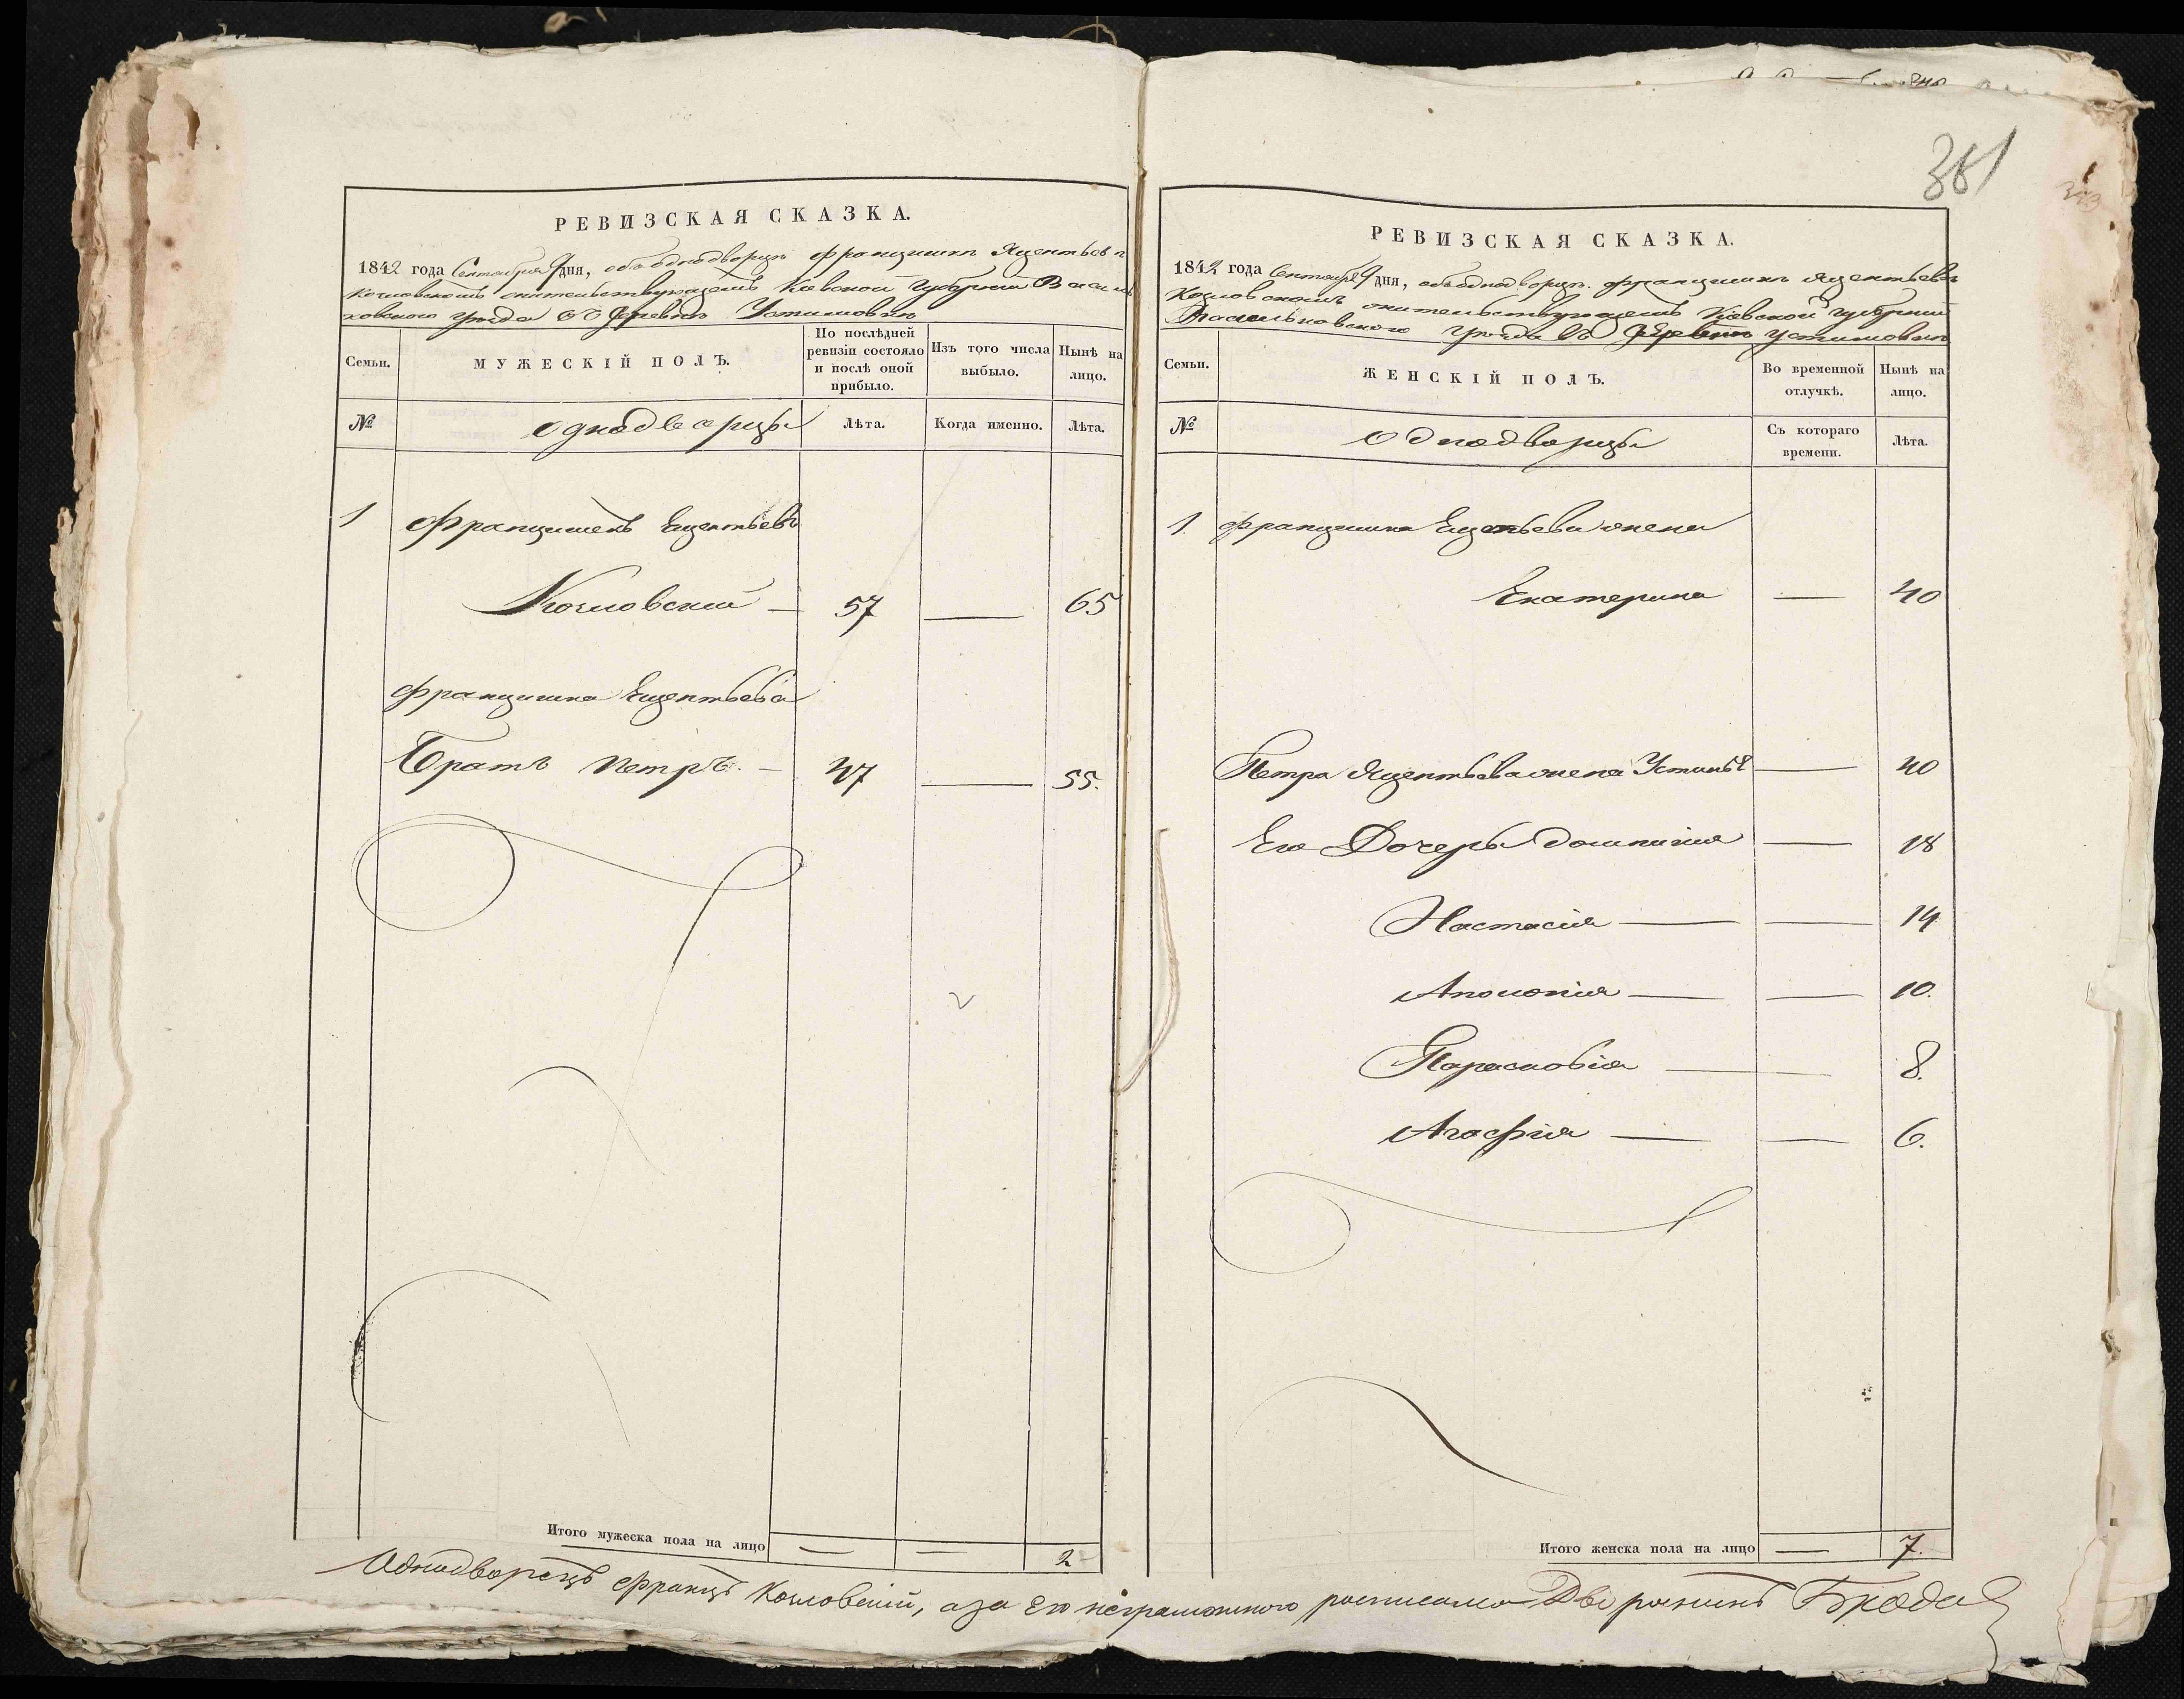 381
РЕВИЗСКАЯ СКАЗКА.
1842 года Сентября 9 дня, объ однодворцѣ Францишкѣ Яцентьевѣ
Козловскомъ жительствующемъ Кіевской Губерніи Василь
ковского уѣзда въ Деревнѣ Устимовкѣ
Семьи.
МУЖЕСКІЙ ПОЛЪ.
По послѣдней
ревизіи состояло
и послѣ оной
прибыло.
Изъ того числа
выбыло.
Нынѣ на
лицо.
№
однодворцы
Лѣта.
Когда именно.
Лѣта.
1 Францишекъ Яцентьевъ
Козловскій — 57 — 65
Францишка Яцентьева
Братъ Петръ. — 47 — 55.
Итого мужеска пола на лицо — — 2
РЕВИЗСКАЯ СКАЗКА.
1842 года Сентября 9 дня, объ однодворцѣ Францишкѣ Яцентьевѣ
Козловскомъ жительствующемъ Кіевской Губерніи
Васильковского уѣзда въ Деревнѣ Устимовкѣ
Семьи.
ЖЕНСКІЙ ПОЛЪ.
Во временной
отлучкѣ.
Нынѣ на
лицо.
№
Однодворцы
Съ котораго
времени.
Лѣта.
1. Францишка Яцентьева жена
Екатерина — 40
Петра Яцентьева жена Устинья — 40
Его Дочеры Доминикія — 18
Настасія — — 14
Аполонія — — 10.
Парасковія — — 8.
Агафія — — 6.
Итого женска пола на лицо — 7.
Однодворецъ Францъ Козловскій, а за Его неграмотного росписался Дворянинъ